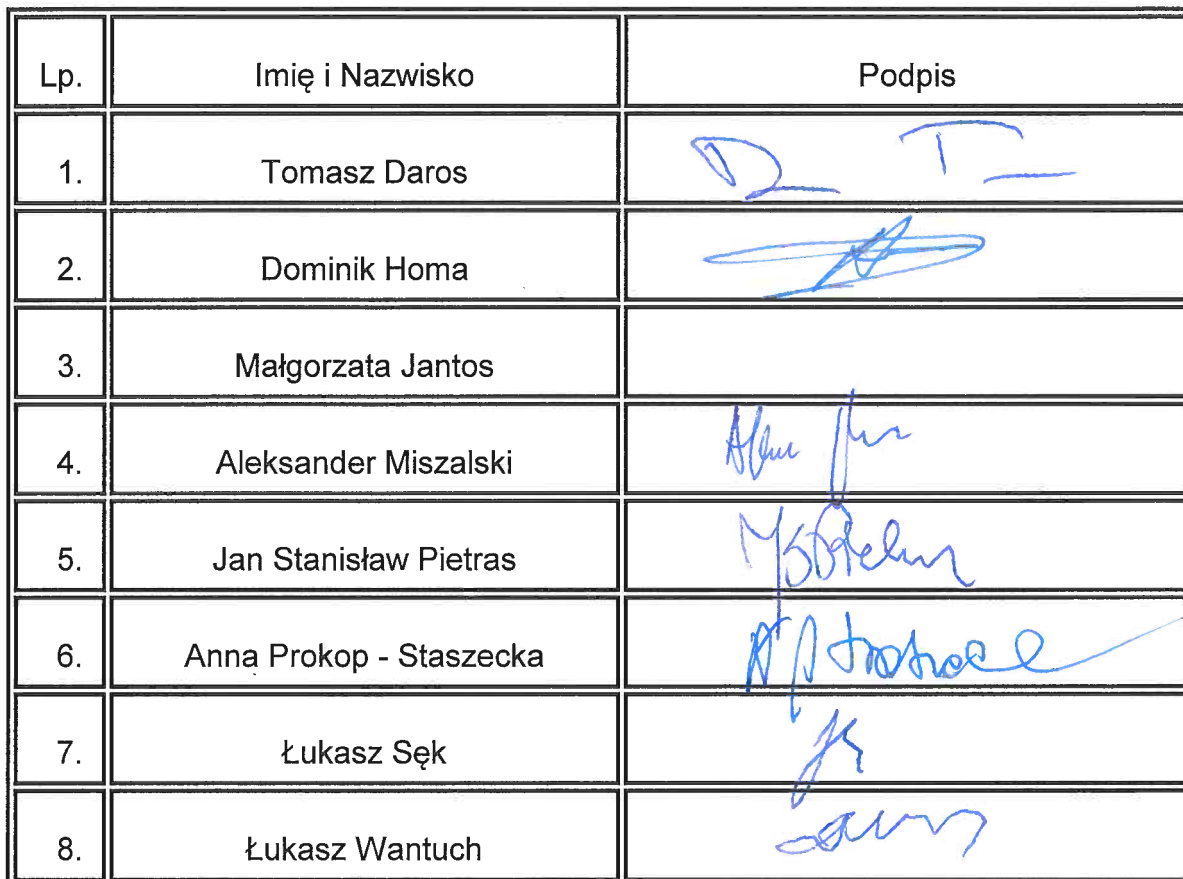 Lp. Imię i Nazwisko Podpis
1. Tomasz Daros
2. Dominik Homa
3. Małgorzata Jantos
4. Aleksander Miszalski
5. Jan Stanisław Pietras
6. Anna Prokop - Staszecka
7. Łukasz Sęk
8. Łukasz Wantuch